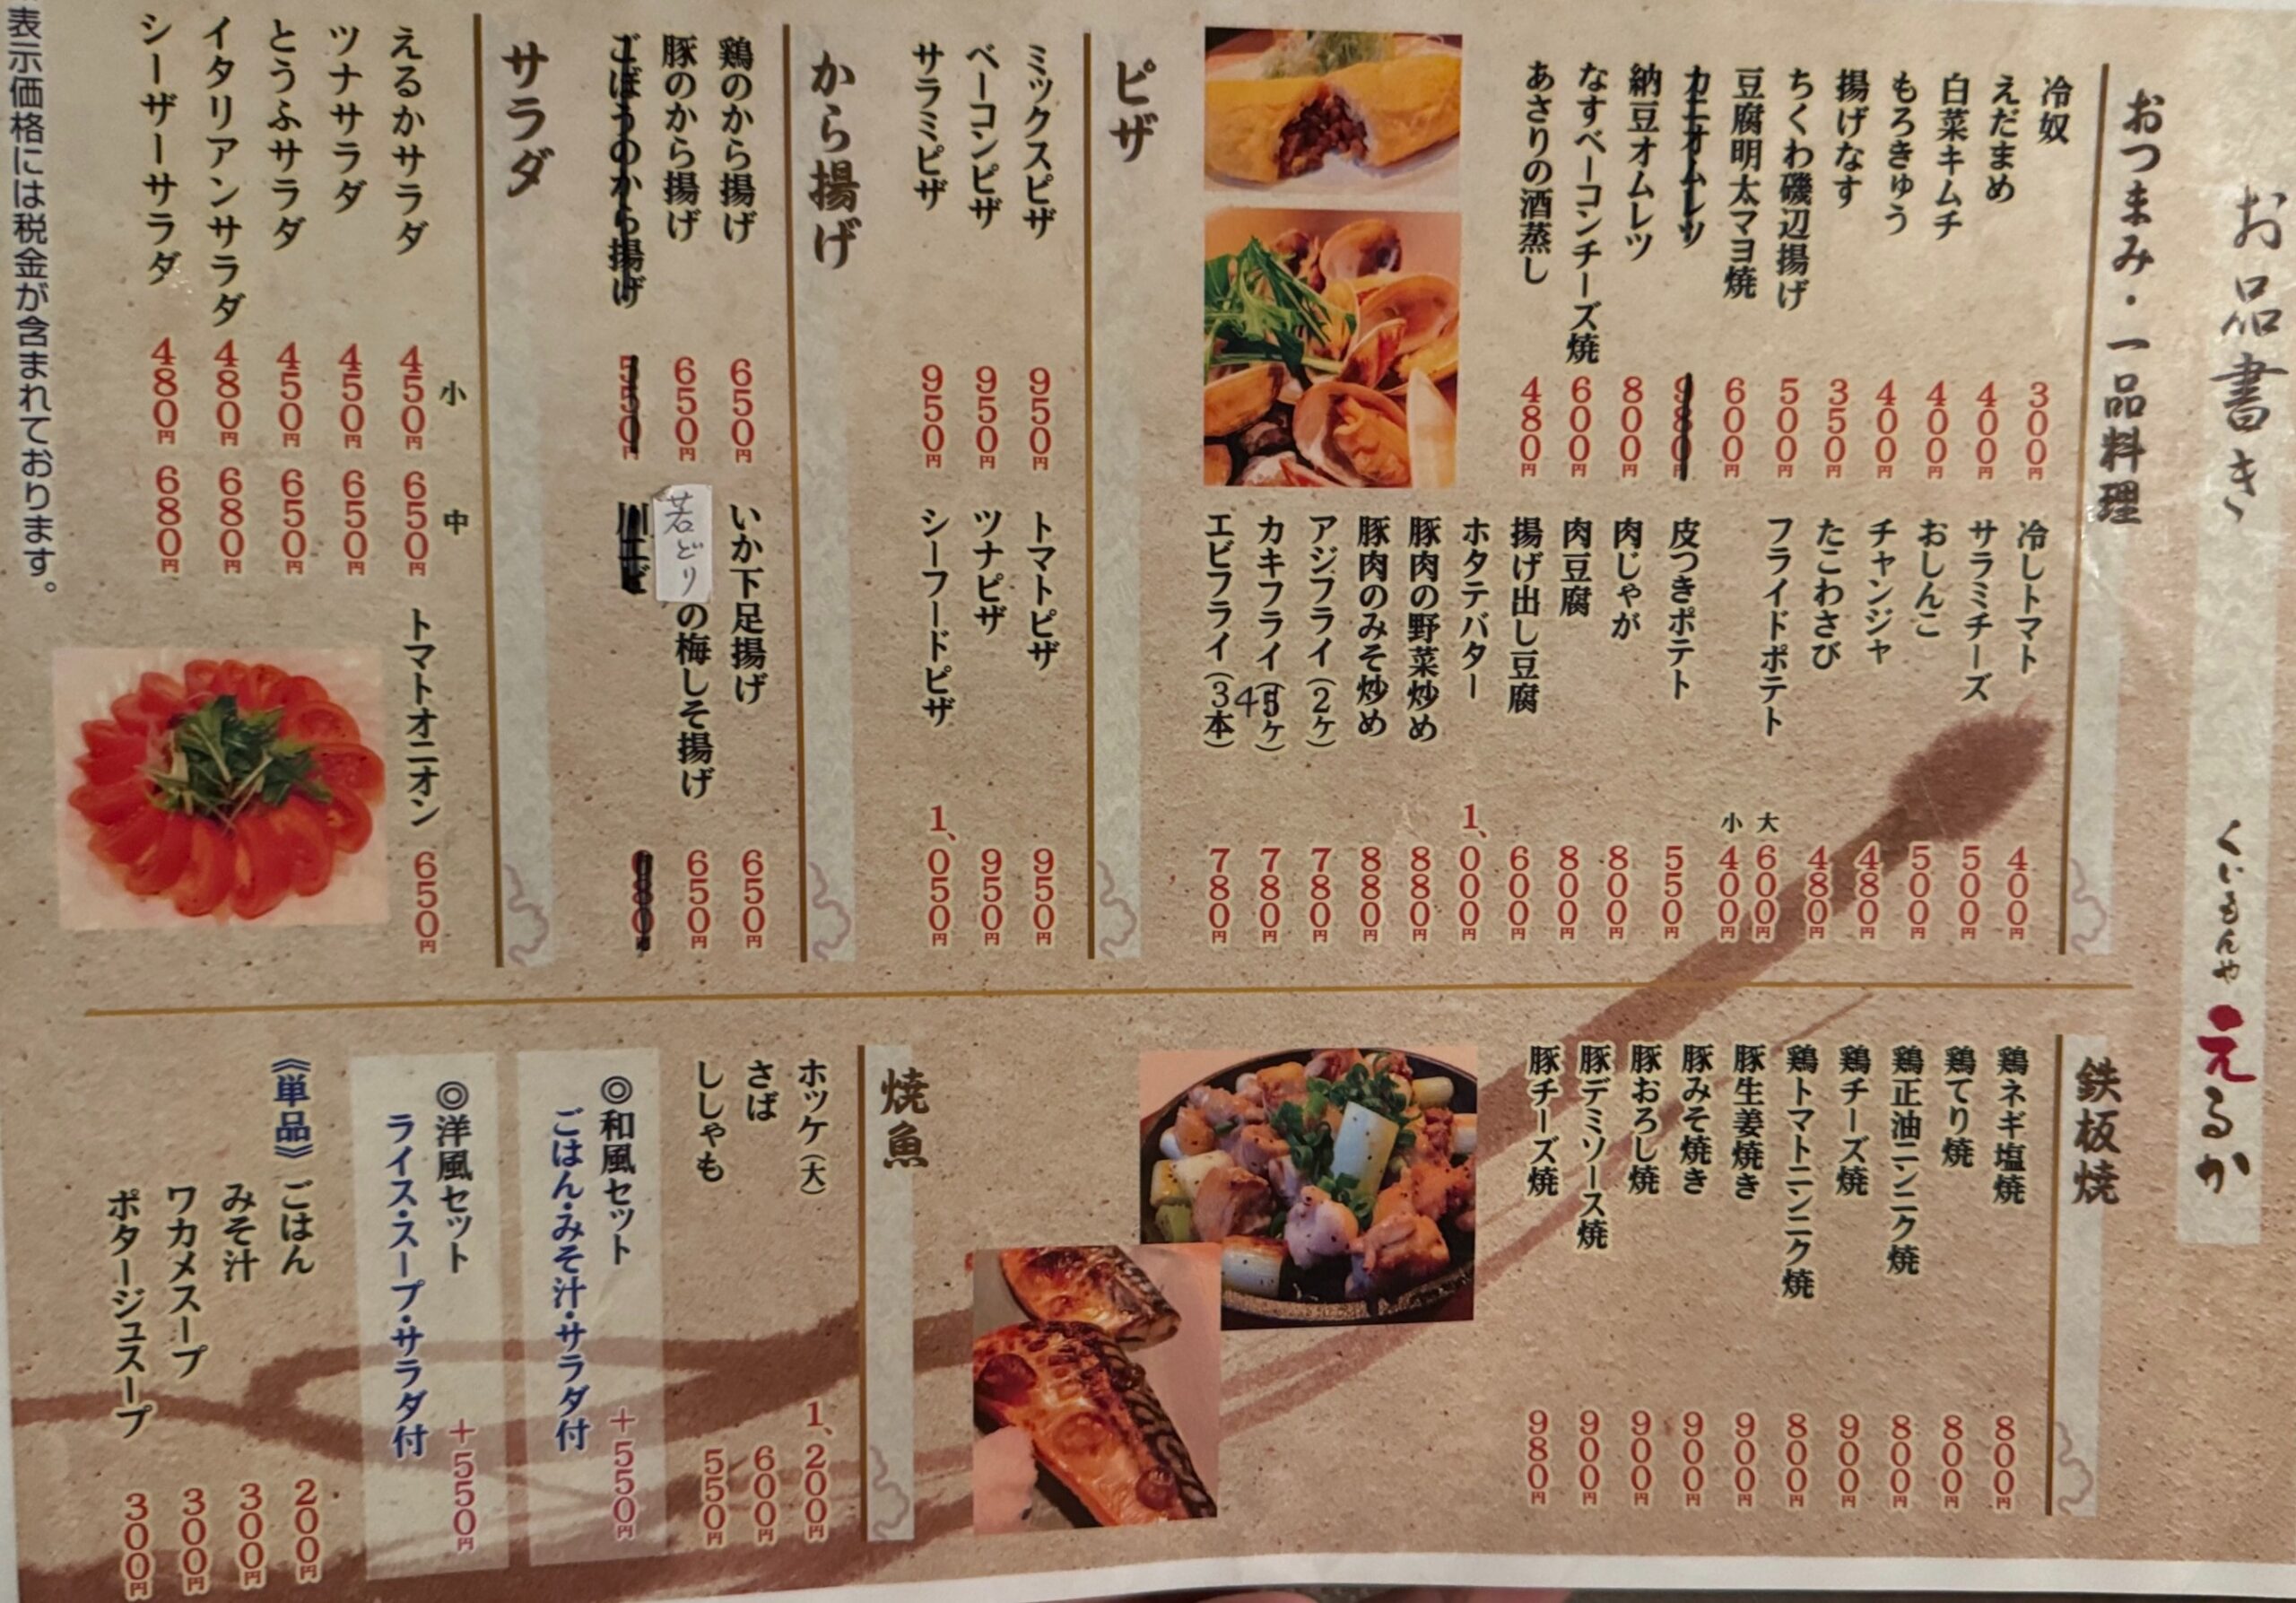 お品書き くいもんや えるか
おつまみ・一品料理
冷奴 300円
えだまめ 400円
白菜キムチ 400円
もろきゅう 400円
揚げなす 350円
ちくわ磯辺揚げ 500円
豆腐明太マヨ焼 600円
カニオムレツ 980円
納豆オムレツ 800円
なすベーコンチーズ焼 600円
あさりの酒蒸し 480円
冷しトマト 400円
サラミチーズ 500円
おしんこ 500円
チャンジャ 480円
たこわさび 480円
フライドポテト 大 600円 小 400円
皮つきポテト 550円
肉じゃが 800円
肉豆腐 800円
揚げ出し豆腐 600円
ホタテバター 1,000円
豚肉の野菜炒め 880円
豚肉のみそ炒め 880円
アジフライ(2ヶ) 780円
カキフライ(4ヶ) 780円
エビフライ(3本) 780円
ピザ
ミックスピザ 950円
ベーコンピザ 950円
サラミピザ 950円
トマトピザ 950円
ツナピザ 950円
シーフードピザ 1,050円
から揚げ
鶏のから揚げ 650円
豚のから揚げ 650円
ごぼうのから揚げ 550円
いか下足揚げ 650円
若どりの梅しそ揚げ 650円
川エビ 680円
サラダ
小 中
えるかサラダ 450円 650円
ツナサラダ 450円 650円
とうふサラダ 450円 650円
イタリアンサラダ 480円 680円
シーザーサラダ 480円 680円
トマトオニオン 650円
鉄板焼
鶏ネギ塩焼 800円
鶏てり焼 800円
鶏正油ニンニク焼 800円
鶏チーズ焼 900円
鶏トマトニンニク焼 800円
豚生姜焼き 900円
豚みそ焼き 900円
豚おろし焼 900円
豚デミソース焼 900円
豚チーズ焼 980円
焼魚
ホッケ(大) 1,200円
さば 600円
ししゃも 550円
◎和風セット +550円
ごはん・みそ汁・サラダ付
◎洋風セット +550円
ライス・スープ・サラダ付
《単品》ごはん 200円
みそ汁 300円
ワカメスープ 300円
ポタージュスープ 300円
表示価格には税金が含まれております。